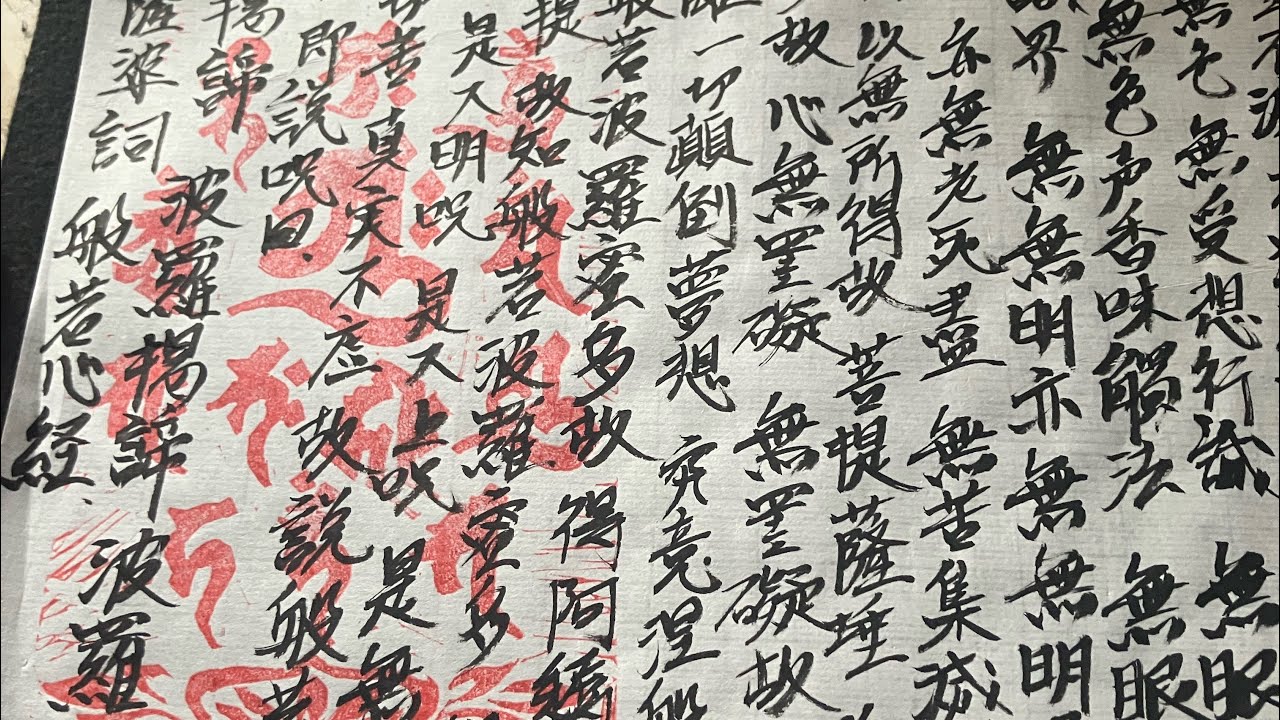 無色 無受想行識 無眼
無色声香味觸法 無眼
界 無無明亦無無明
亦無老死盡 無苦集滅
以無所得故 菩提薩埵
故 心無罣礙 無罣礙故
一切顛倒夢想 究竟涅般
般若波羅蜜多故 得阿
提 故知般若波羅蜜多
是大明呪 是大上呪 是無
苦 真実不虚 故説般若
即説呪曰
揭諦 波羅揭諦 波羅
薩婆訶 般若心経